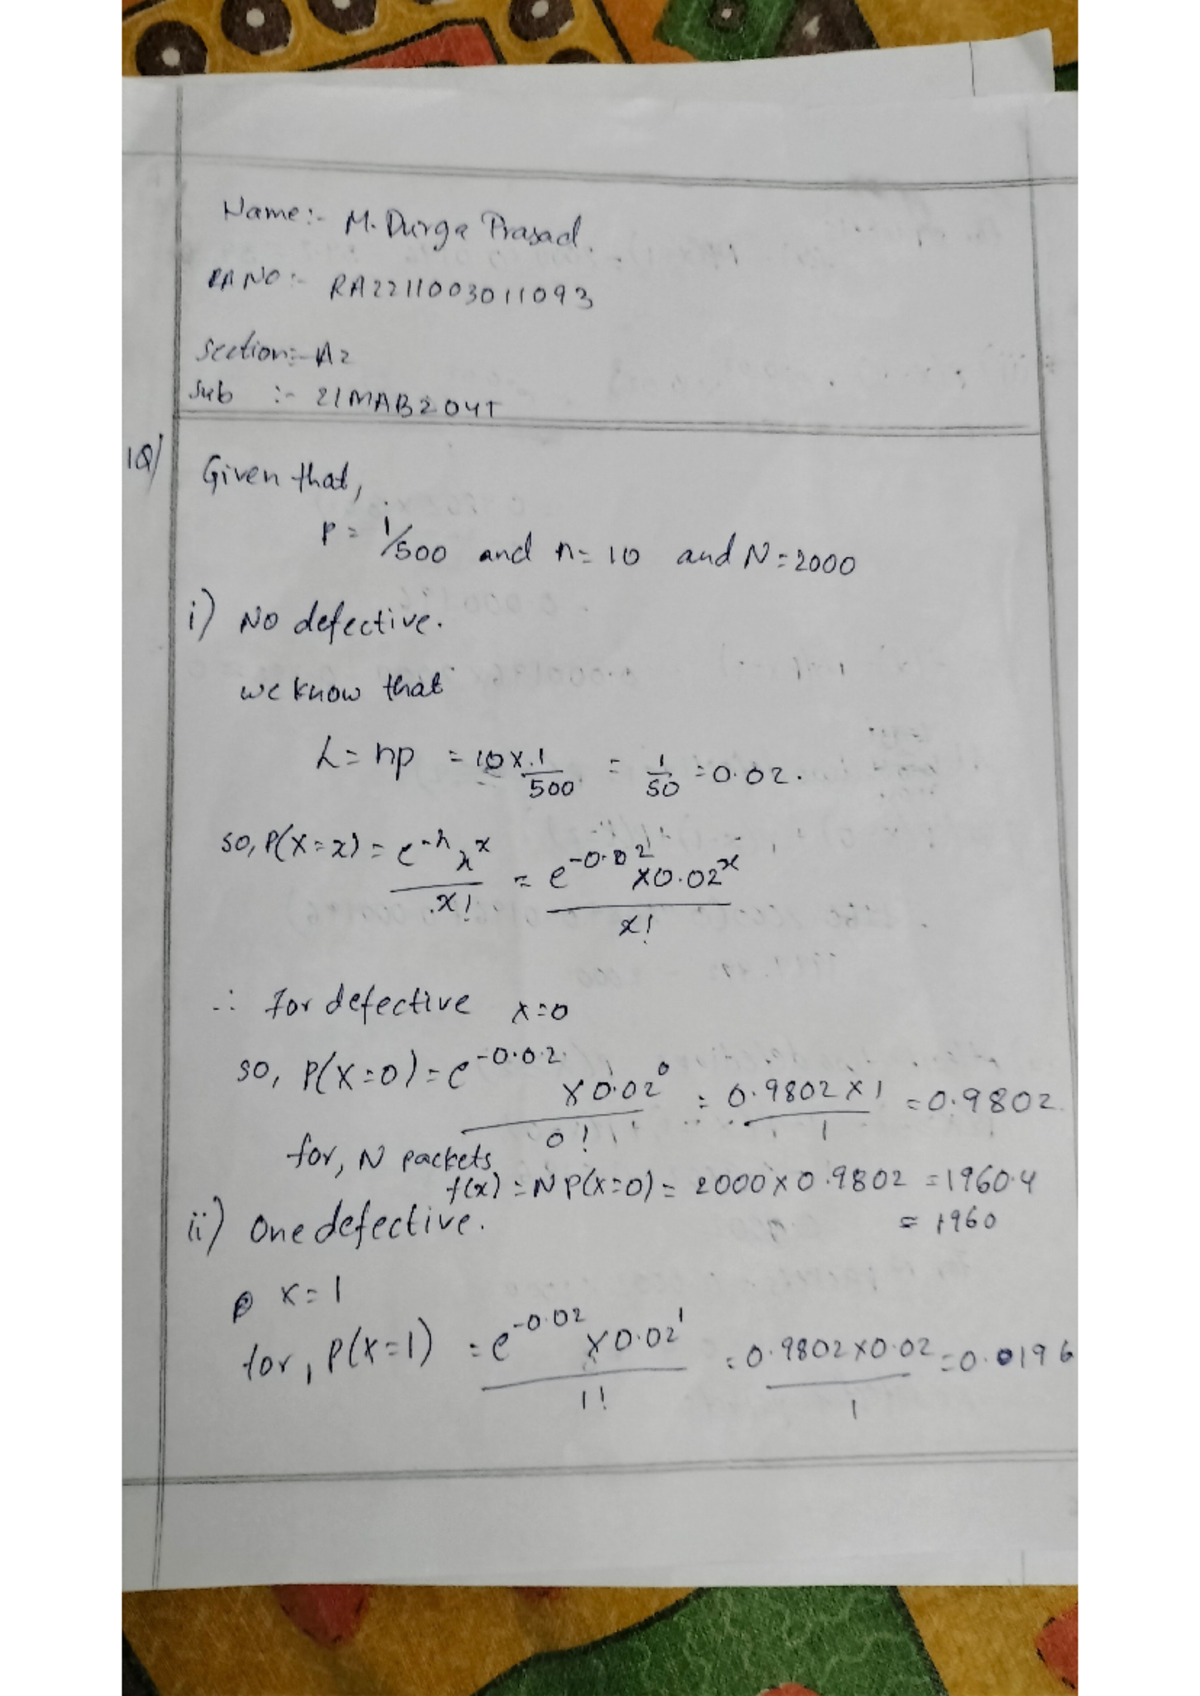 Name:- M. Durga Prasad.
RA NO:- RA2211003011093
Section:- A2
Sub :- 21MAB204T
1Q) Given that,
P = 1/500 and n = 10 and N = 2000
i) No defective.
we know that
λ = np = 10 x 1/500 = 1/50 = 0.02.
so, P(X=x) = e^-λ λ^x / x! = e^-0.02 x 0.02^x / x!
∴ for defective x=0
so, P(X=0) = e^-0.02 x 0.02^0 / 0! = 0.9802 x 1 / 1 = 0.9802
for, N packets
f(x) = NP(X=0) = 2000 x 0.9802 = 1960.4
= 1960
ii) One defective.
x = 1
for, P(X=1) = e^-0.02 x 0.02^1 / 1! = 0.9802 x 0.02 / 1 = 0.0196